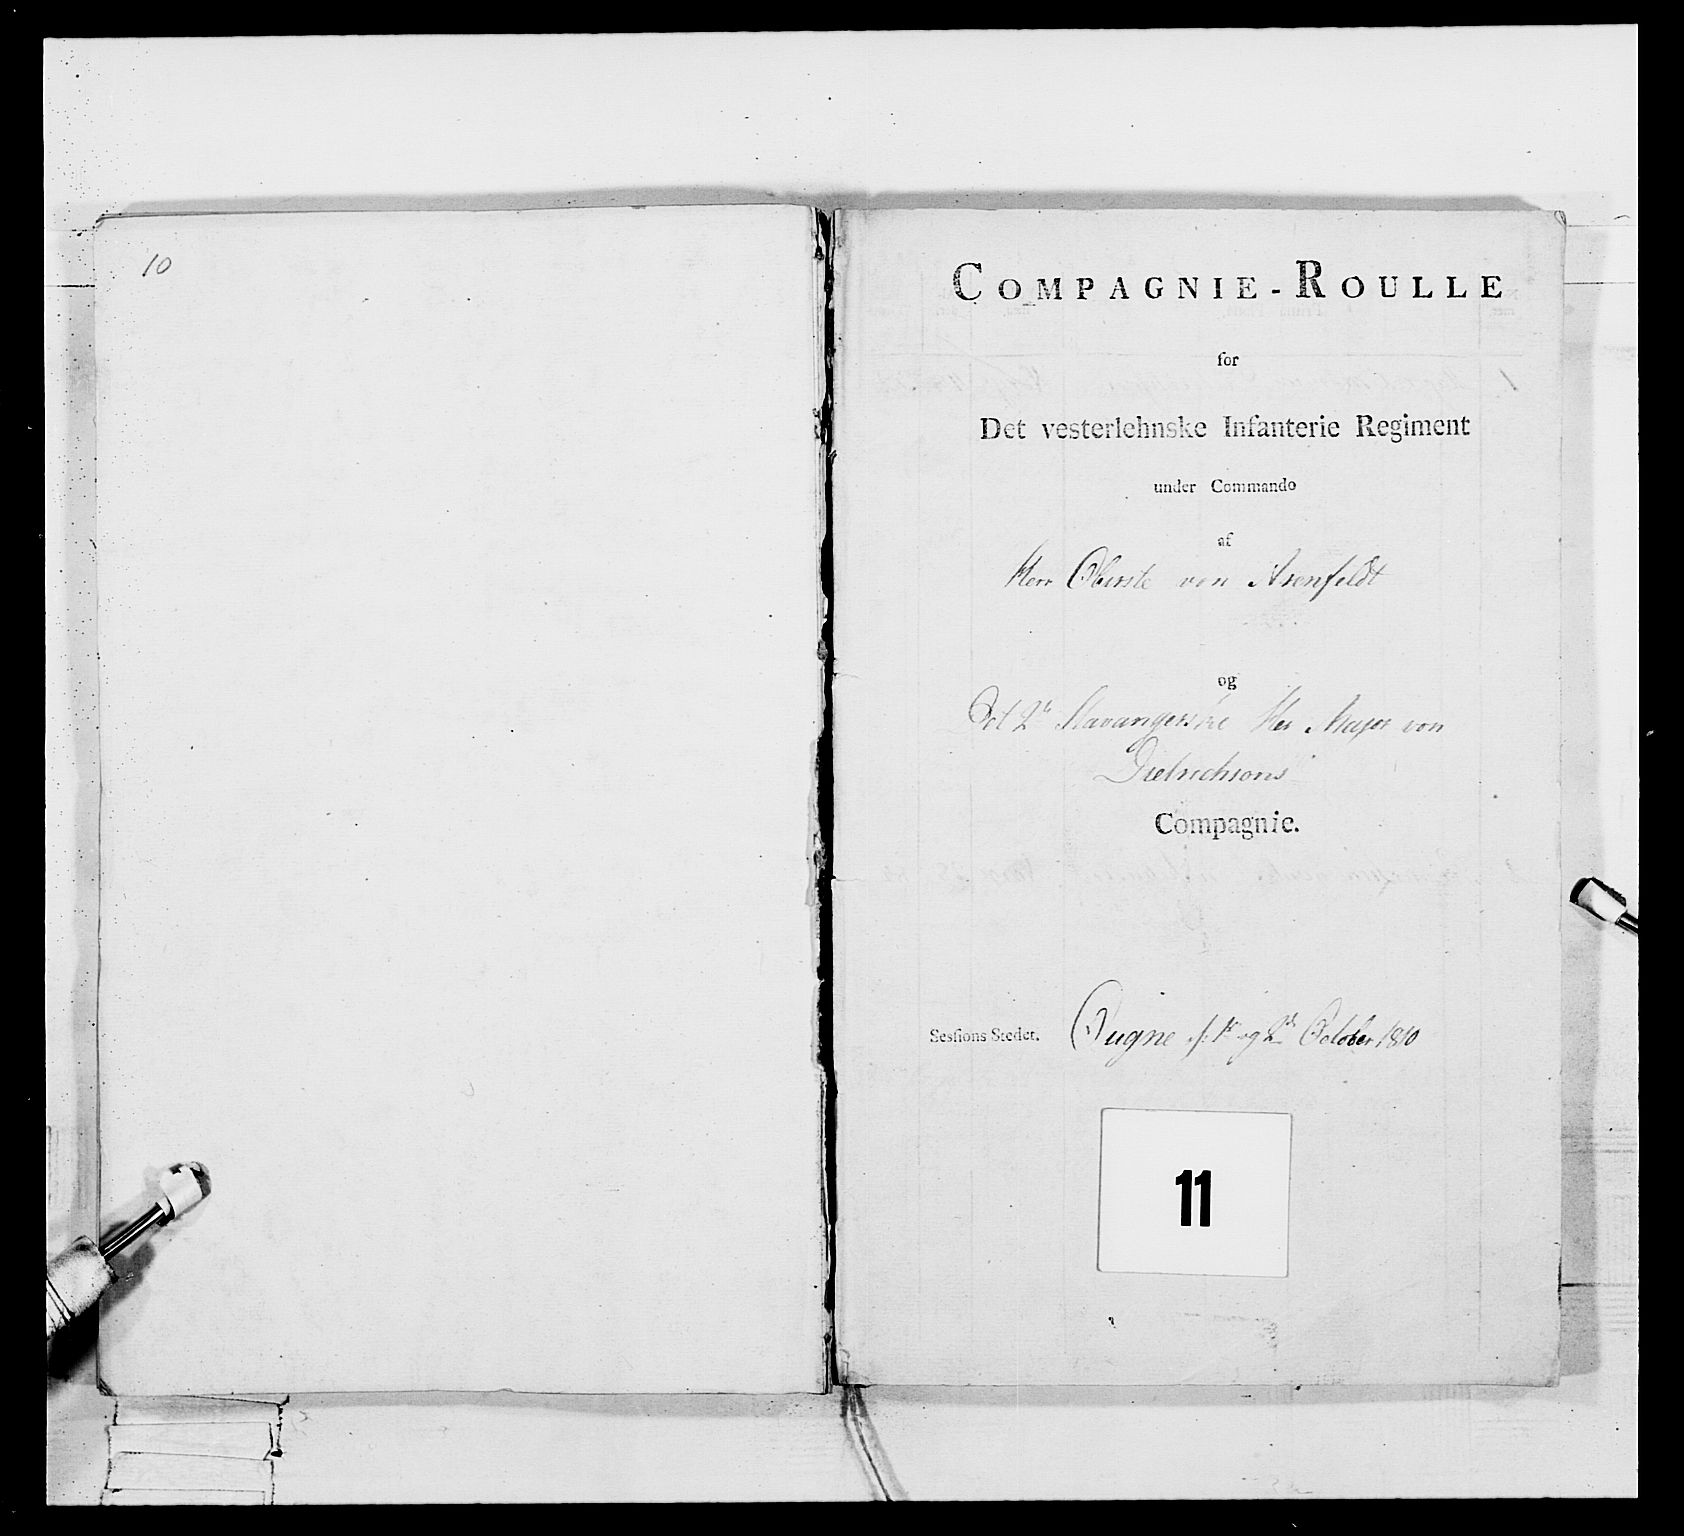 10
COMPAGNIE-ROULLE
for
Det vesterlehnske Infanterie Regiment
under Commando
af
Herr Oberste von Arenfeldt
og
Det 2de Stavangerske Her Major von
Dietrichsons
Compagnie.
Sessions Stedet. Augne d: 1te og 2de October 1810
11